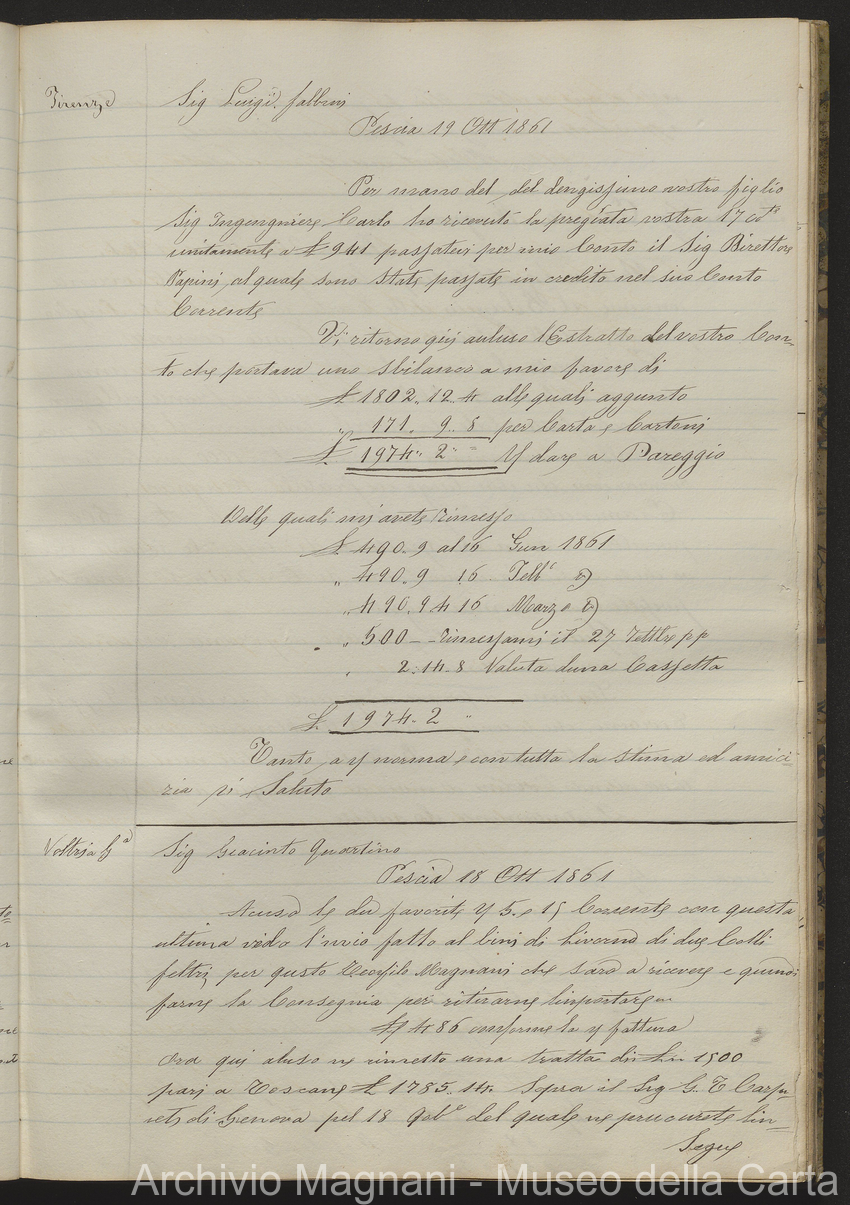 Firenze
Sig Luigi
Pescia 19 Ott 1861
Per mano del del degnissimo vostro figlio
Sig Ingengniere Carlo ho ricevuto la pregiata vostra 17 cote
unitamente a £ 941 passatevi per mio Conto il Sig Direttore
Papini al quale sono state passate in credito nel suo Conto
Corrente
Vi ritorno qui acluso l'Estratto del vostro Con=
to che portava uno sbilancio a mio favore di
£ 1802.. 12.. 4 alle quali aggunto
" 171. 9.. 8 per Carta e Cartoni
£. 1974.. 2.. = V dare a Pareggio
Delle quali mi avete rimesso
£. 490. 9 al 16 Gen 1861
" 490. 9 16 Febb
" 490. 9 4 16 Marzo
" 500 - - rimessami il 27 Settbe pp
" 2. 14. 8 Valuta duna Cassetta
£. 1974. 2 "
Tanto a V norma e con tutta la stima ed amici=
zia vi Saluto
Voltri
Sig Giacinto Quartino
Pescia 18 Ott 1861
Acuso le due favorite V 5. e 15 Corrente con questa
ultima vedo l'invio fatto al Bini di Livorno di due Colli
feltri per questo Teofilo Magnani che sarà a ricevere e quindi
farne la Consegnia per ritirarne limportare in
£ 486 conforme la V fattura
Ora qui acluso ve rimetto una tratta di Ln 1500
pari a Toscane £ 1785.. 14. Sopra il Sig G. T. Carpe=
neti di Genova pel 18 9bre del quale ne procurete lin=
Segue
Archivio Magnani - Museo della Carta